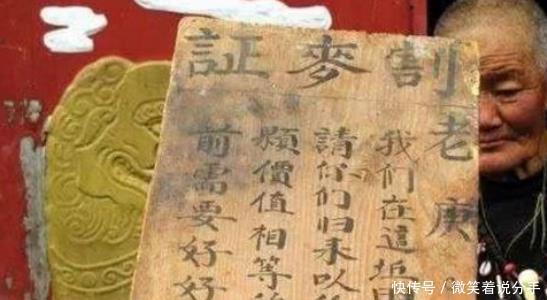 割麥証
老庚
我们在這坵
請你们归来以
顆價值相等
前需要好好
快传号 / 微笑着说分手